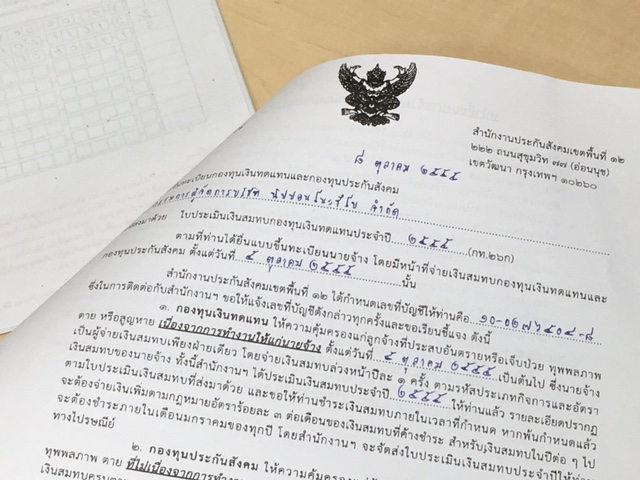 สำนักงานประกันสังคมเขตพื้นที่ ๑๒
๒๒๒ ถนนสุขุมวิท ๗๗ (อ่อนนุช)
เขตวัฒนา กรุงเทพฯ ๑๐๒๖๐
๘ ตุลาคม ๒๕๕๕
ทะเบียนกองทุนเงินทดแทนและกองทุนประกันสังคม
กรรมการผู้จัดการบริษัท นิปปอน จำกัด
ส่งมาด้วย ใบประเมินเงินสมทบกองทุนเงินทดแทนประจำปี ๒๕๕๕ (กท.๒๖ก)
ตามที่ท่านได้ยื่นแบบขึ้นทะเบียนนายจ้าง โดยมีหน้าที่จ่ายเงินสมทบกองทุนเงินทดแทนและ
กองทุนประกันสังคม ตั้งแต่วันที่ ๕ ตุลาคม ๒๕๕๕ นั้น
สำนักงานประกันสังคมเขตพื้นที่ ๑๒ ได้กำหนดเลขที่บัญชีให้ท่านคือ ๑๐-๐๒๗๖๕๐๔-๘
ซึ่งในการติดต่อกับสำนักงานฯ ขอให้แจ้งเลขที่บัญชีดังกล่าวทุกครั้งและขอเรียนชี้แจง ดังนี้
๑. กองทุนเงินทดแทน ให้ความคุ้มครองแก่ลูกจ้างที่ประสบอันตรายหรือเจ็บป่วย ทุพพลภาพ
ตาย หรือสูญหาย เนื่องจากการทำงานให้แก่นายจ้าง ตั้งแต่วันที่ ๕ ตุลาคม ๒๕๕๕ เป็นต้นไป ซึ่งนายจ้าง
เป็นผู้จ่ายเงินสมทบเพียงฝ่ายเดียว โดยจ่ายเงินสมทบล่วงหน้าปีละ ๑ ครั้ง ตามรหัสประเภทกิจการและอัตรา
เงินสมทบของนายจ้าง ทั้งนี้สำนักงานฯ ได้ประเมินเงินสมทบประจำปี ๒๕๕๕ ให้ท่านแล้ว รายละเอียดปรากฏ
ตามใบประเมินเงินสมทบที่ส่งมาด้วย และขอให้ท่านชำระเงินสมทบภายในเวลาที่กำหนด หากพ้นกำหนดแล้ว
จะต้องจ่ายเงินเพิ่มตามกฎหมายอัตราร้อยละ ๓ ต่อเดือนของเงินสมทบที่ค้างชำระ สำหรับเงินสมทบในปีต่อ ๆ ไป
จะต้องชำระภายในเดือนมกราคมของทุกปี โดยสำนักงานฯ จะจัดส่งใบประเมินเงินสมทบประจำปีให้ท่าน
ทางไปรษณีย์
๒. กองทุนประกันสังคม ให้ความคุ้มครอง
ทุพพลภาพ ตาย ที่ไม่เนื่องจากการทำงาน